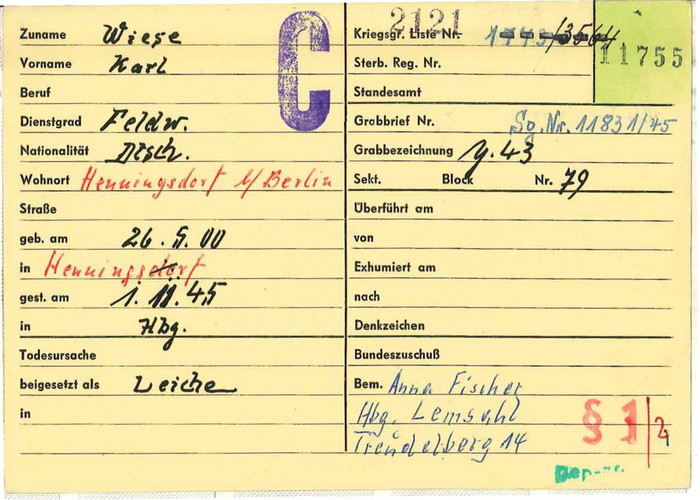 Zuname Wiese
Vorname Karl
Beruf
Dienstgrad Feldw.
Nationalität Dtsch.
Wohnort Henningsdorf b/Berlin
Straße
geb. am 26.5.00
in Henningsdorf
gest. am 1.11.45
in Hbg.
Todesursache
beigesetzt als Leiche
in
C
2121
Kriegsgr. Liste Nr.
11755
Sterb. Reg. Nr.
Standesamt
Grabbrief Nr. So. Nr. 11831/45
Grabbezeichnung y. 43
Sekt. Block Nr. 79
Überführt am
von
Exhumiert am
nach
Denkzeichen
Bundeszuschuß
Bem. Anna Fischer
Hbg. Lemsahl
Treudelberg 14
§ 1/2